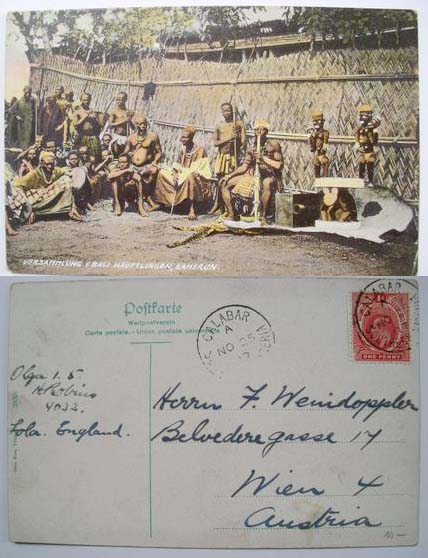 VERSAMMLUNG V. BALI HÄUPTLINGEN, KAMERUN.
Postkarte
Weltpostverein
Carte postale. - Union postale universelle
CALABAR
A
NO 25
17
CALABAR
ONE PENNY
Olga 1. 5.
4033.
Lola. England.
Herrn F. Weindoppler
Belvederegasse 17
Wien 4
Austria
10 —